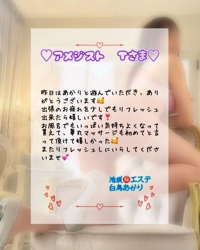 ♡アメジスト Tさま♡
昨日はあかりと遊んでいただき、あり
がとうございます🥰
出張のお疲れを少しでもリフレッシュ
出来たら嬉しいです❣
お風呂でもいっぱい気持ちよくなって
貰えて、
マッサージも初めてと言
って頂けて嬉しかった🥰
またリフレッシュしにいらしてくださ
いませ💕
池袋㊙エステ
白鳥あかり